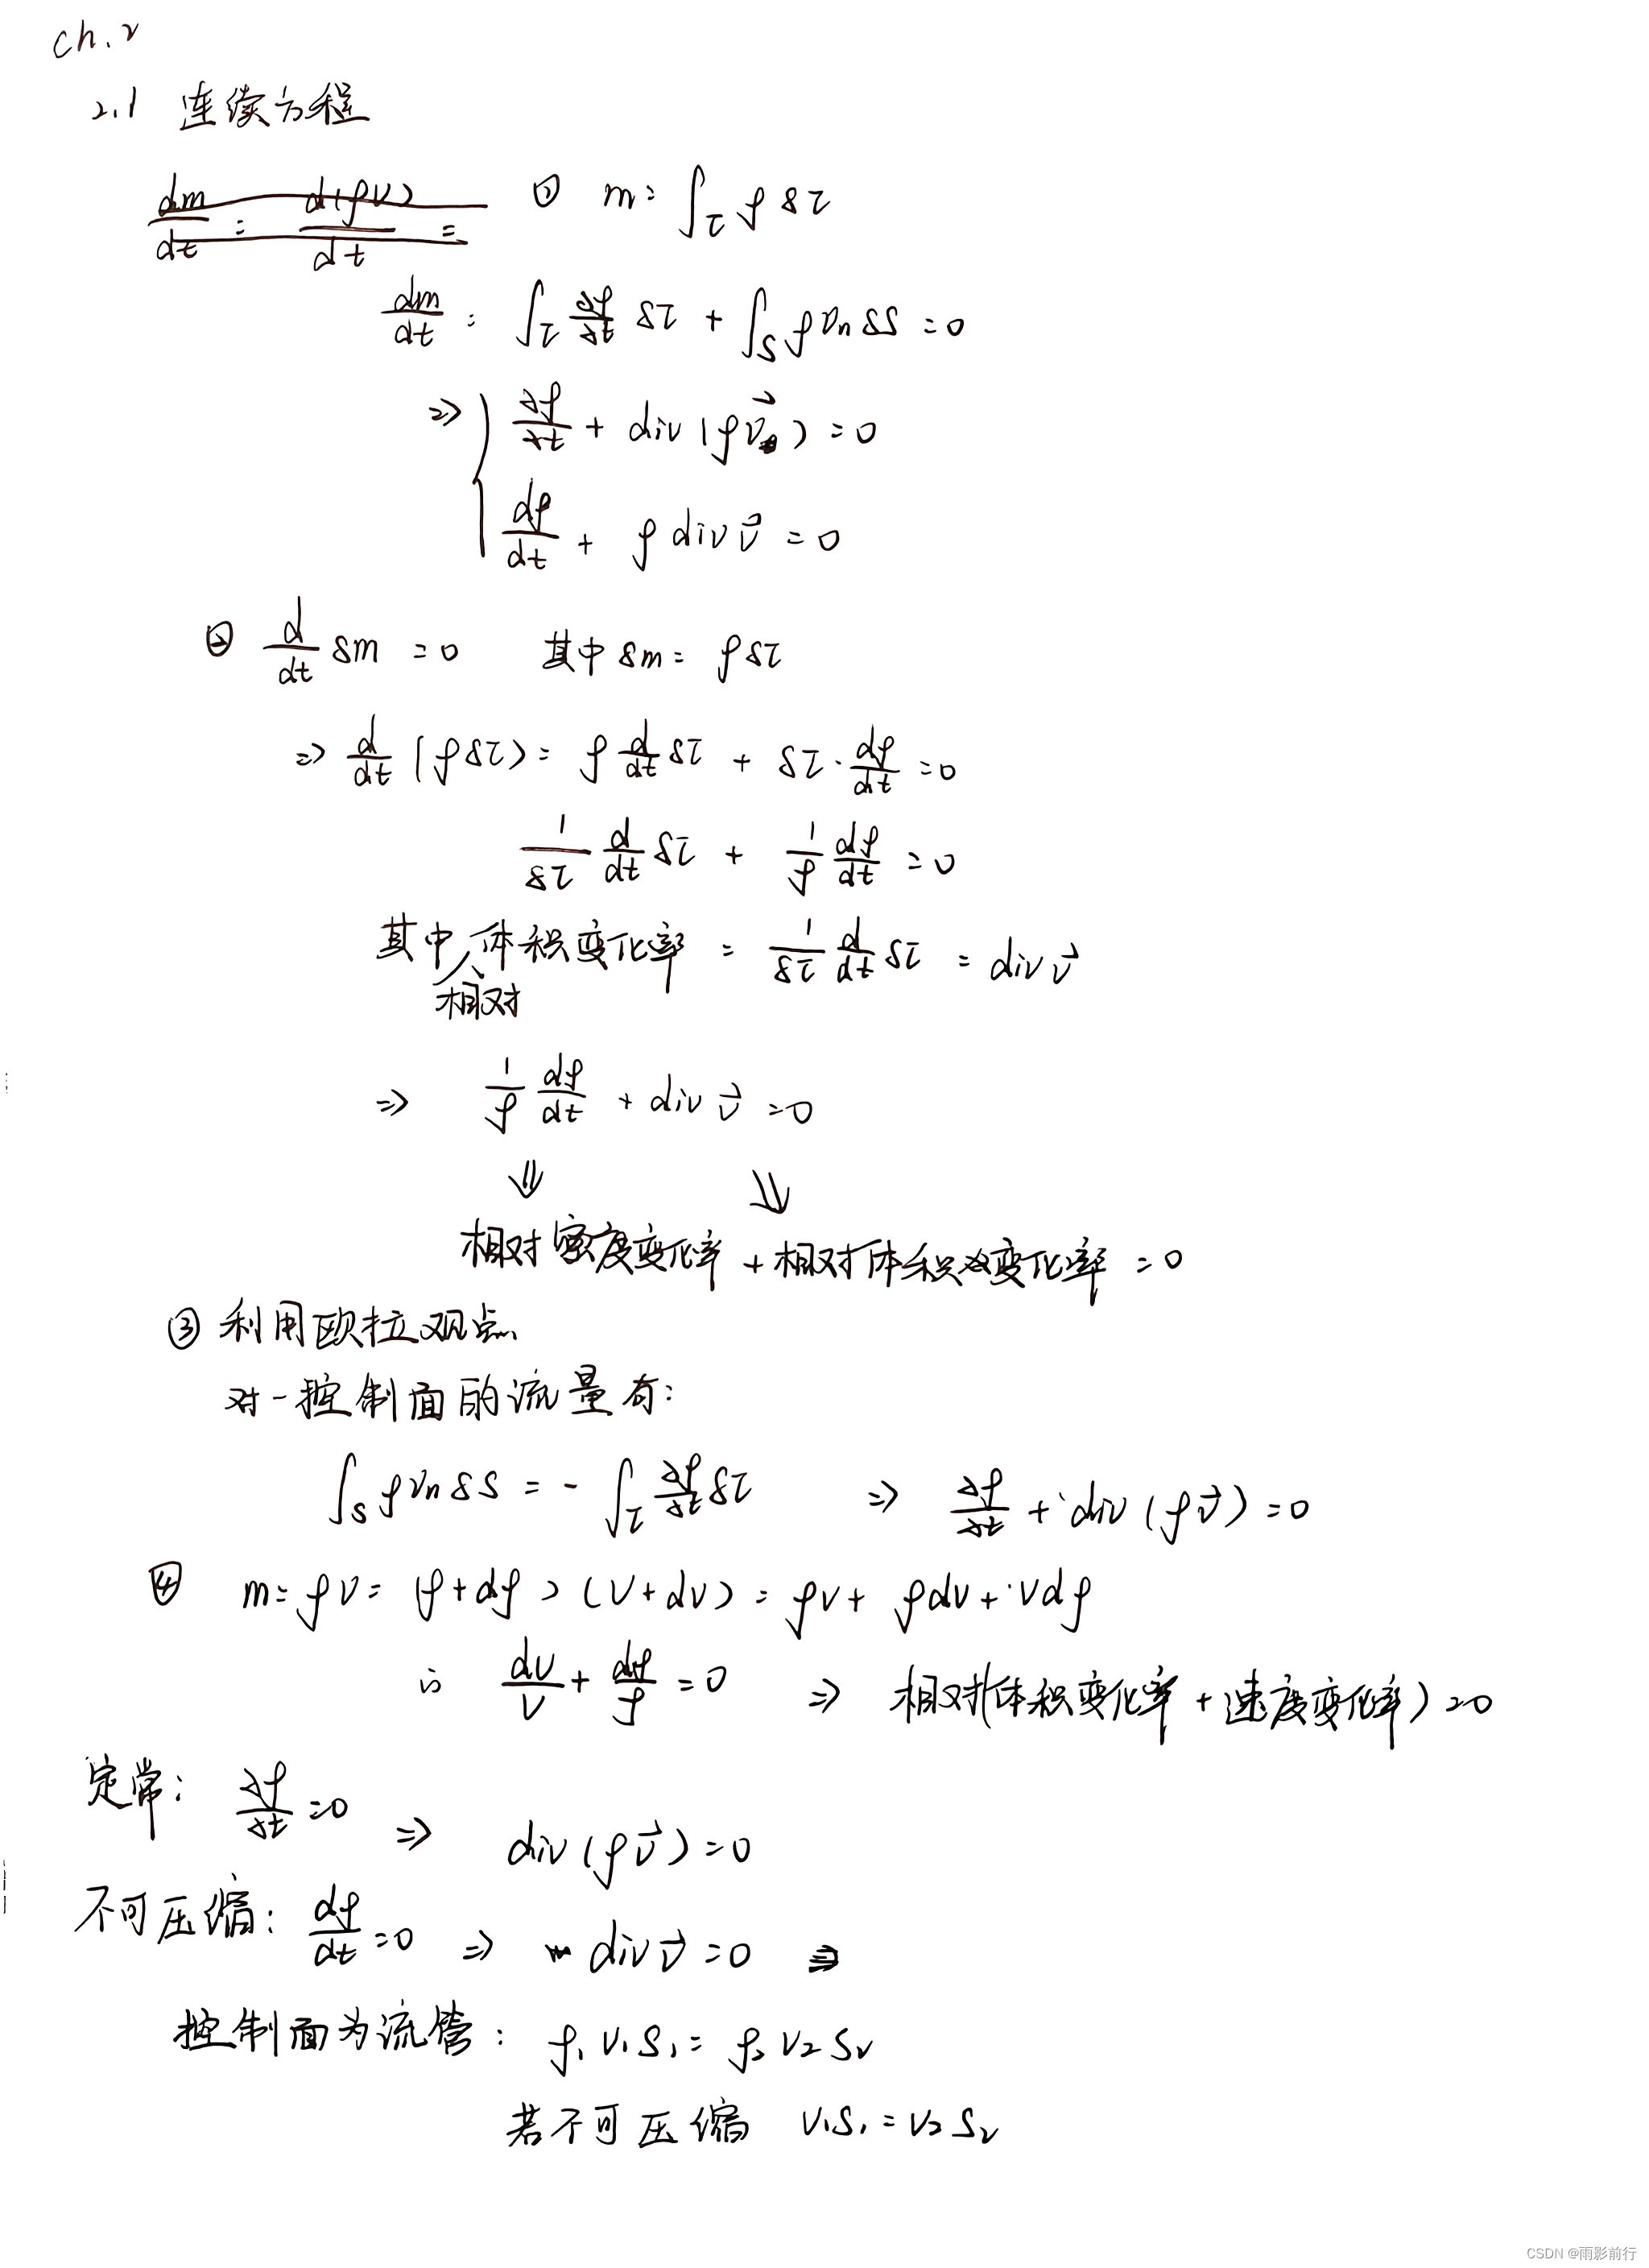 ch.2
2.1 连续方程
dm/dt = d(ρV)/dt = ① m = ∫_τ ρ δτ
dm/dt = ∫_τ ∂ρ/∂t δτ + ∫_S ρ v_n δS = 0
⇒ { ∂ρ/∂t + div (ρv⃗) = 0
dρ/dt + ρ div v⃗ = 0
② d/dt δm = 0 其中 δm = ρδτ
⇒ d/dt (ρδτ) = ρ d/dt δτ + δτ · dρ/dt = 0
1/δτ d/dt δτ + 1/ρ dρ/dt = 0
其中相对体积变化率 = 1/δτ d/dt δτ = div v⃗
⇒ 1/ρ dρ/dt + div v⃗ = 0
⇓ ⇓
相对密度变化率 + 相对体积变化率 = 0
③ 利用欧拉观点
对一控制面的流量有:
∫_S ρ v_n δS = - ∫_τ ∂ρ/∂t δτ ⇒ ∂ρ/∂t + div (ρv⃗) = 0
④ m = ρV = (ρ+dρ)(V+dV) = ρV + ρdV + Vdρ
∴ dV/V + dρ/ρ = 0 ⇒ 相对(体积变化率 + 速度变化率) = 0
定常: ∂ρ/∂t = 0 ⇒ div (ρv⃗) = 0
不可压缩: dρ/dt = 0 ⇒ div v⃗ = 0
控制面为流管: ρ₁ v₁ S₁ = ρ₂ v₂ S₂
若不可压缩 v₁S₁ = v₂S₂
CSDN @雨影前行